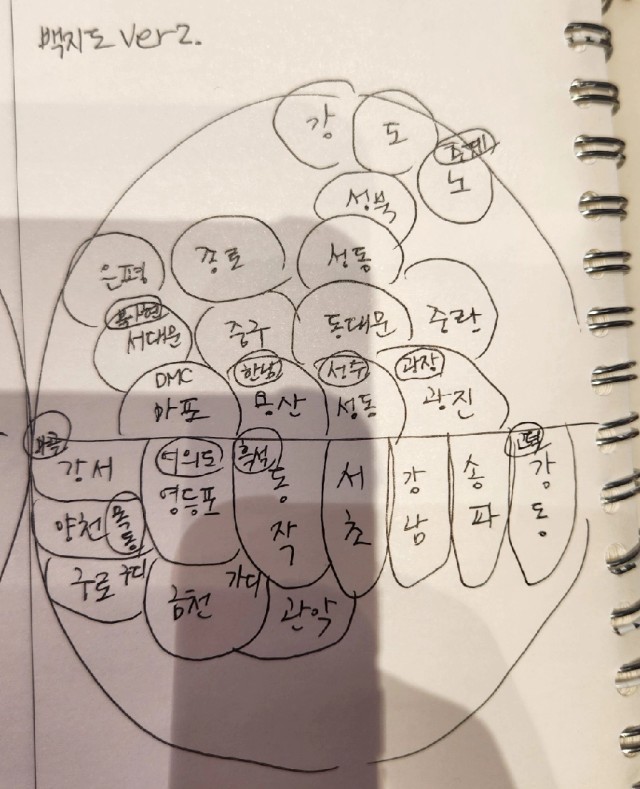 백지도 ver2.
강
도
노
성북
은평
종로
성동
서대문
중구
동대문
중랑
DMC
마포
한남
용산
성수
성동
광장
광진
강서
여의도
영등포
흑석
동작
서초
강남
송파
강동
양천
목동
구로 구디
금천
가디
관악